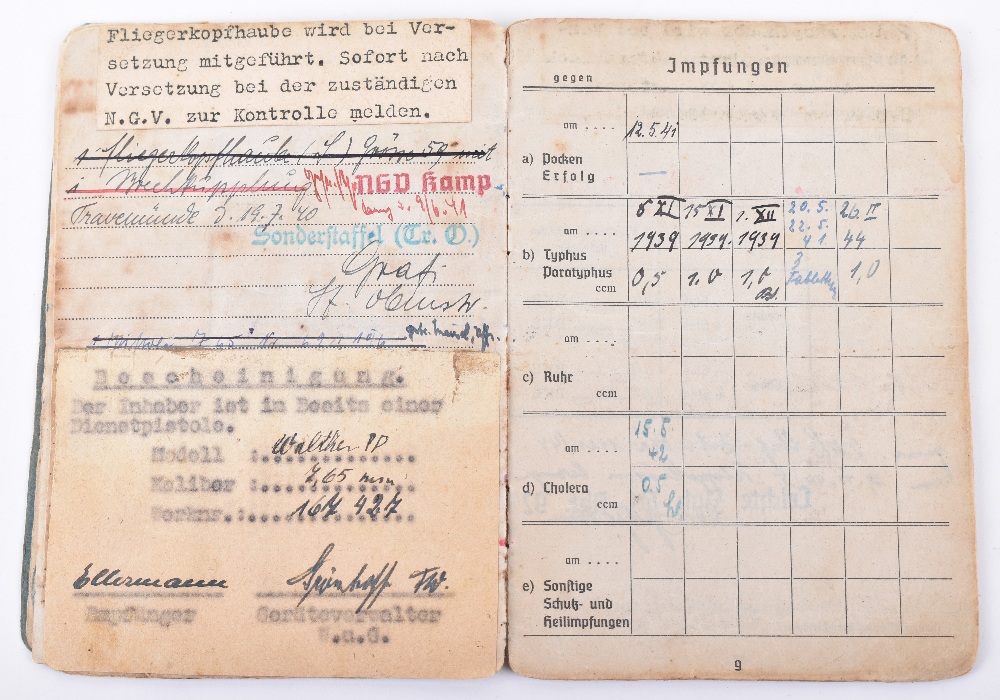 Fliegerkopfhaube wird bei Ver-
setzung mitgeführt. Sofort nach
Versetzung bei der zuständigen
N.G.V. zur Kontrolle melden.
1 Fliegerkopfhaube (L) Grösse 59 mit
NGV Kamp
Travemünde d. 19.7.40
Sonderstaffel (Tr. O.)
Graf
Bescheinigung.
Der Inhaber ist im Besitz einer
Dienstpistole.
Modell :Walther PP
Kaliber :7,65 mm
Werknr.:167 427
Ellermann Grönhoff Fw.
Empfänger Geräteverwalter
W.u.G.
Impfungen
gegen
am .... 12.5.41
a) Pocken
Erfolg —
am .... 8 XI 1939 15 XI 1939. 1. XII 1939 20.5. 22.5. 41 26. II 44
b) Typhus
Paratyphus
ccm 0,5 1.0 1,0 3 Tabletten 1,0
am ....
c) Ruhr
ccm
am .... 15.5. 42
d) Cholera 0.5
ccm
am ....
e) Sonstige
Schutz- und
Heilimpfungen
9